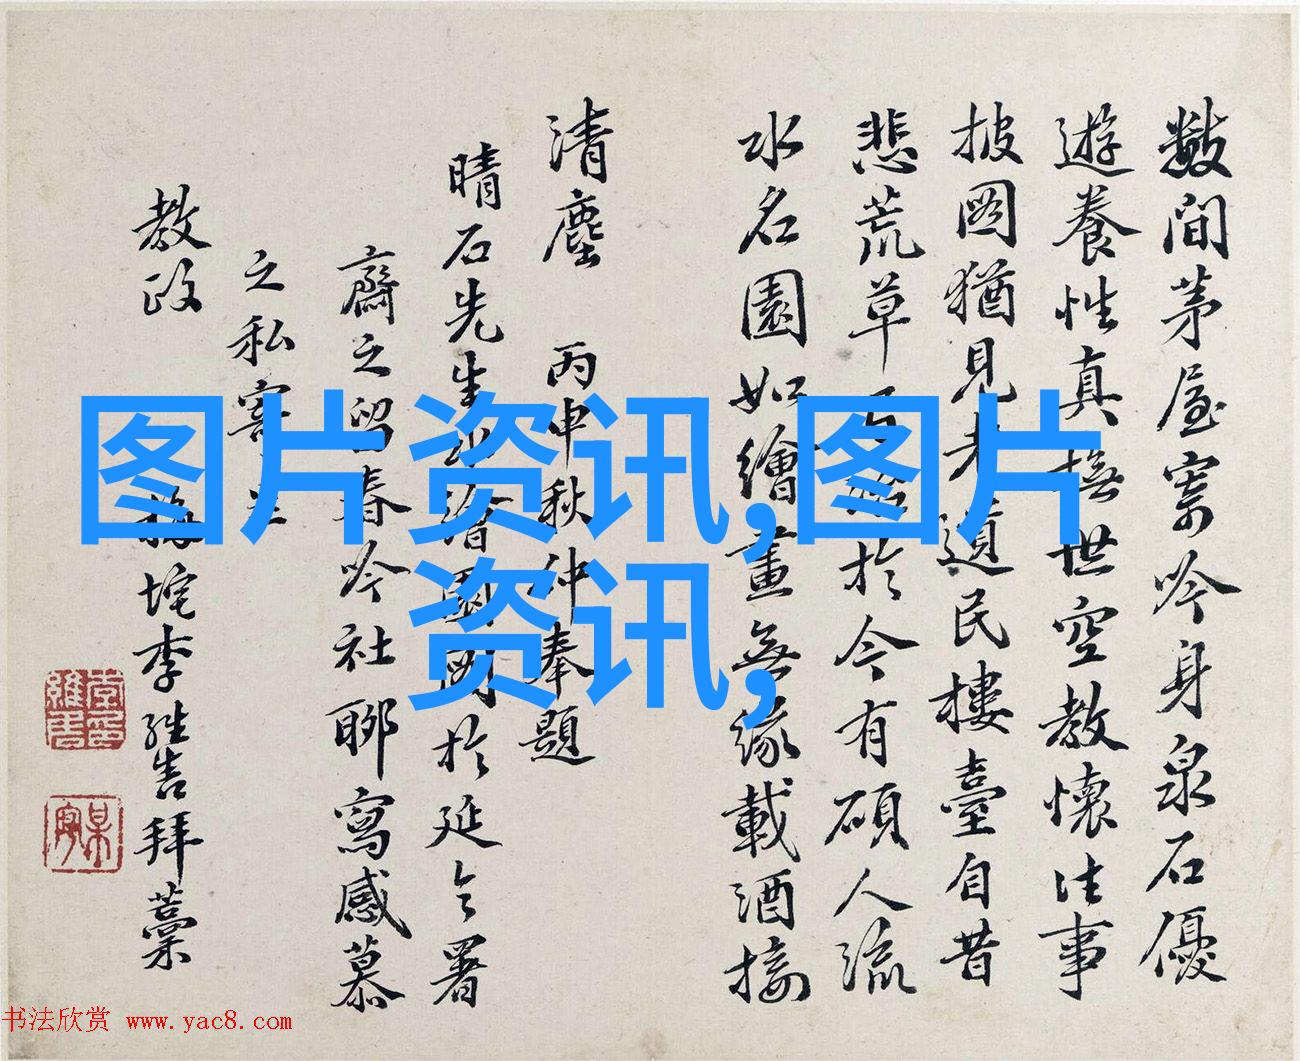 數間茅屋寄吟身泉石優
遊養性真撫世空教懷往事
披圖猶見老遺民樓臺自昔
悲荒草 於今有碩人流
水名園如繪畫無緣載酒接
清塵 丙申秋仲奉題
晴石先生 繪園圖於延令署
齋之留春吟社聊寫感慕
之私寄
教政 梅垞李維
拜藁
图片资讯,图片
资讯,
书法欣赏 www.yac8.com